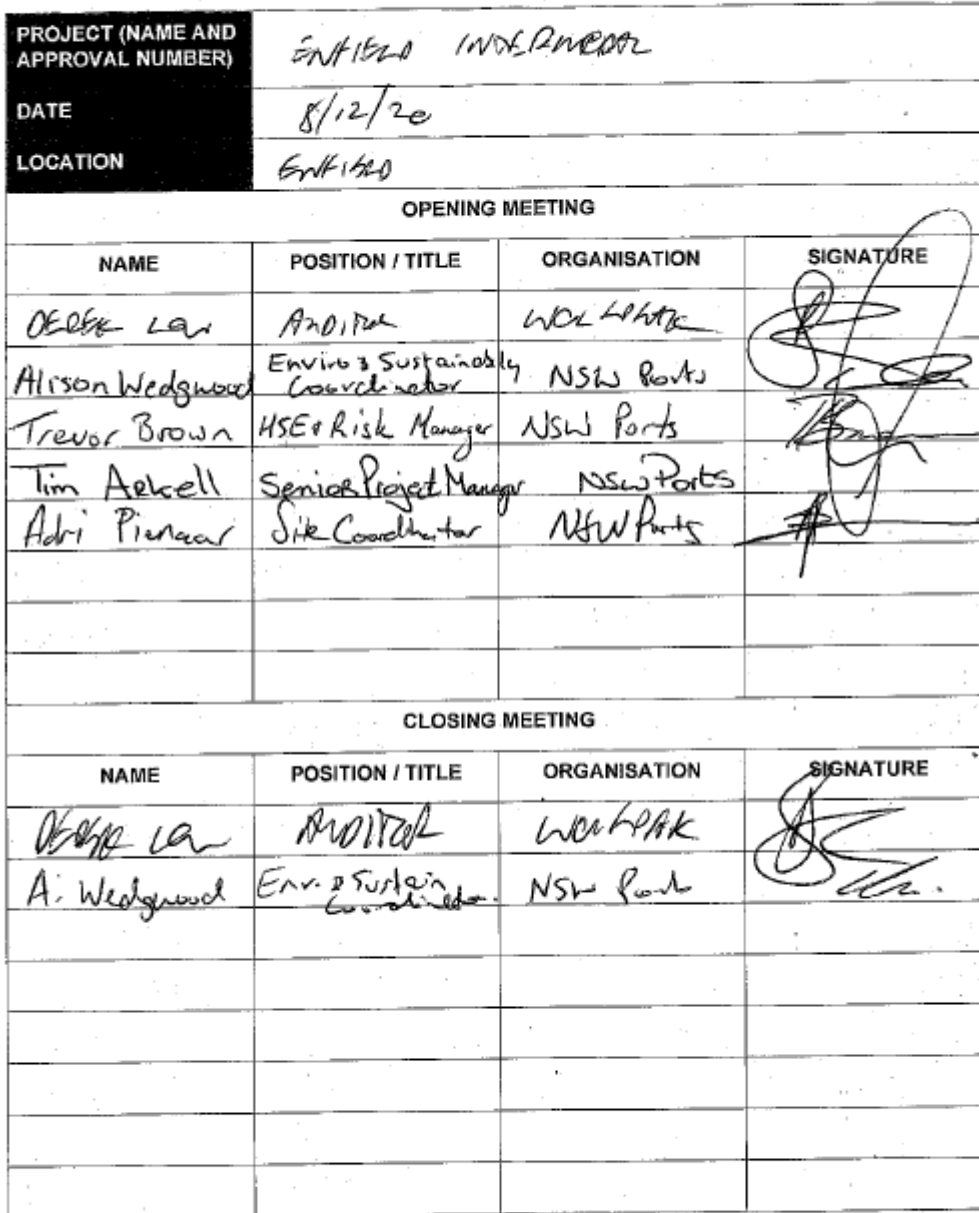 PROJECT (NAME AND
APPROVAL NUMBER)
ENFIELD INTERMODAL
DATE
8/12/20
LOCATION
ENFIELD
OPENING MEETING
NAME POSITION / TITLE ORGANISATION SIGNATURE
DEREK LOW AUDITOR WOLFPEAK
Alison Wedgwood Enviro & Sustainability Coordinator NSW Ports
Trevor Brown HSE & Risk Manager NSW Ports
Tim Arkell Senior Project Manager NSW Ports
Adri Pienaar Site Coordinator NSW Ports
CLOSING MEETING
NAME POSITION / TITLE ORGANISATION SIGNATURE
DEREK LOW AUDITOR WOLFPEAK
A. Wedgwood Env. & Sustain Coordinator. NSW Ports